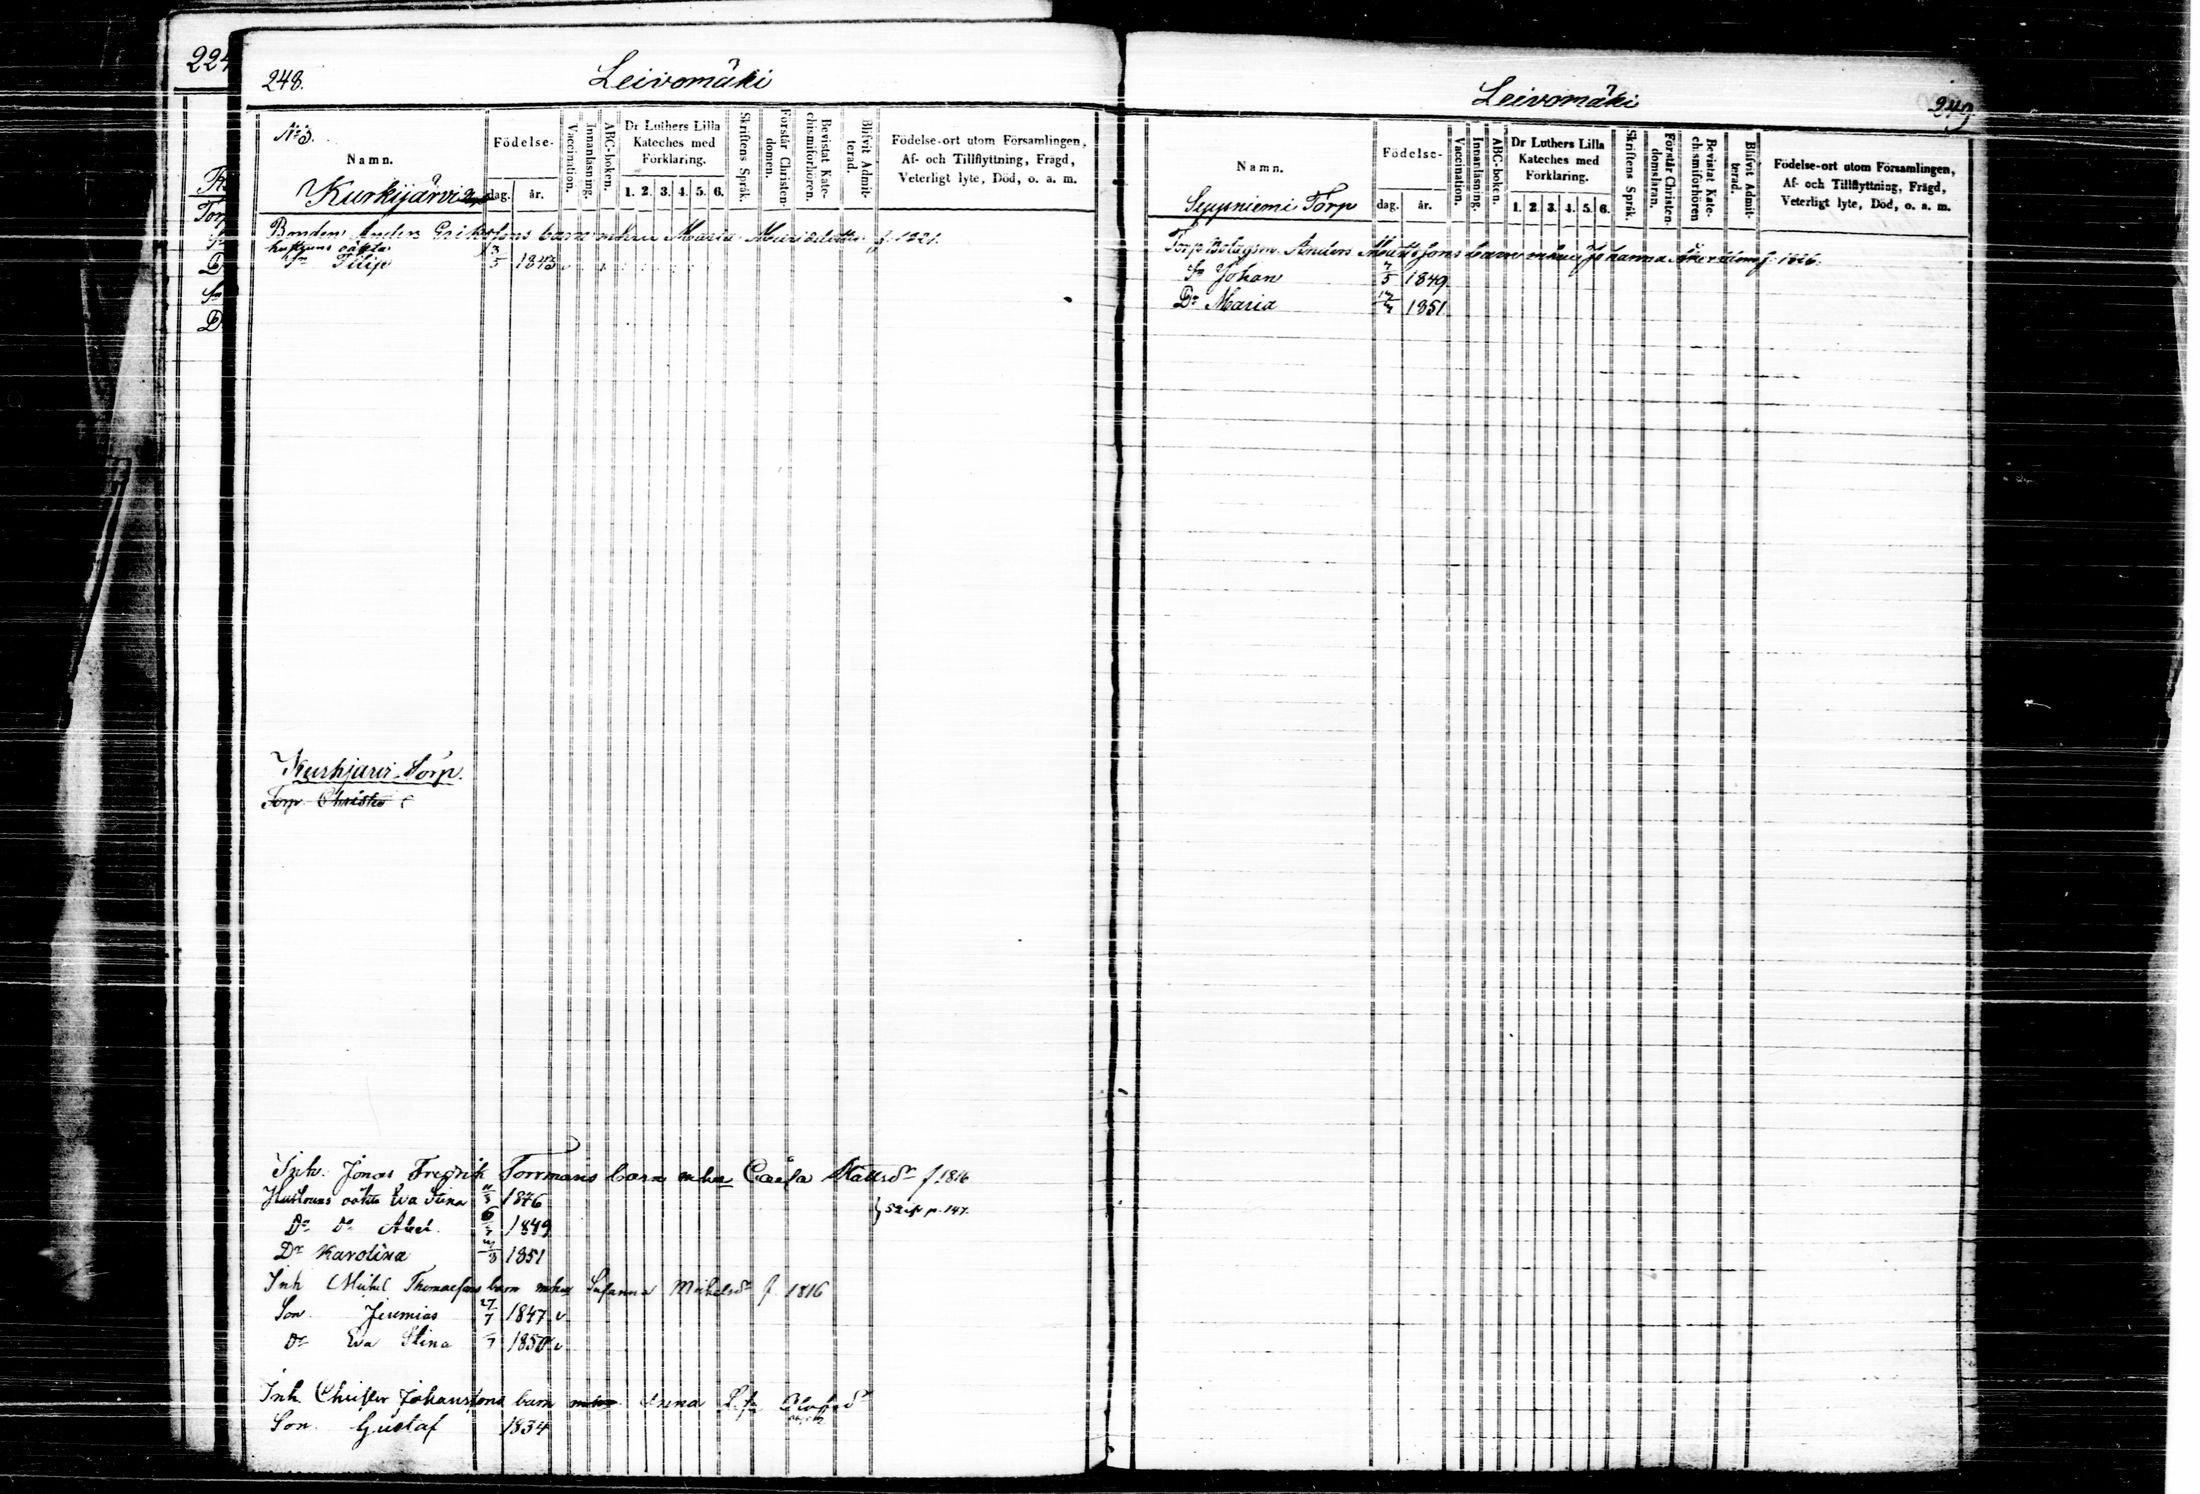 224
248.
Leivomäki
N:o 3.
Namn.
Födelse-
dag.
år.
Vaccination.
Innanläsning.
ABC-boken.
Dr Luthers Lilla
Kateches med
Förklaring.
1. 2. 3. 4. 5. 6.
Skriftens Språk.
Förstår Christen-
domen.
Bevistat Kate-
chismiförhören.
Blifvit Admit-
terad.
Födelse-ort utom Församlingen,
Af- och Tillflyttning, Frägd,
Veterligt lyte, Död, o. a. m.
Kurkijärvi
Bonden Anders Eriksfons barn mhu Maria f. 1821.
hustruns oäkta
Sn Filip 5 1843
Kurkjärvi Torp.
Torp. Christer
Inh. Jonas Fredrik Torrmans barn mhu Cajsa Mattsdr f. 1816
Hustruns oäkta Eva Stina 1846
Do Do Abel. 6 1849
} 52 p. 147.
Dr Karolina 8 1851
Inh Michel Thomasfons barn mhu Susanna Michelsdr f. 1816
Son. Jeremias 27/7 1847 v
Dr Eva Stina 7 1850 v
Inh. Christer Johansfons barn mhu Anna
Son. Gustaf 1834
Leivomäki
249.
Namn.
Födelse-
dag.
år.
Vaccination.
Innanläsning.
ABC-boken.
Dr Luthers Lilla
Kateches med
Förklaring.
1. 2. 3. 4. 5. 6.
Skriftens Språk.
Förstår Christen-
domsläran.
Bevistat Kate-
chismiförhören
Blifvit Admit-
terad.
Födelse-ort utom Församlingen,
Af- och Tillflyttning, Frägd,
Veterligt lyte, Död, o. a. m.
Syysniemi Torp
Torp. Bolagsm. Anders Mattsfons barn mhu Johanna Åkerblom f. 1826.
Sn Johan 5 1849
Dr Maria 1851